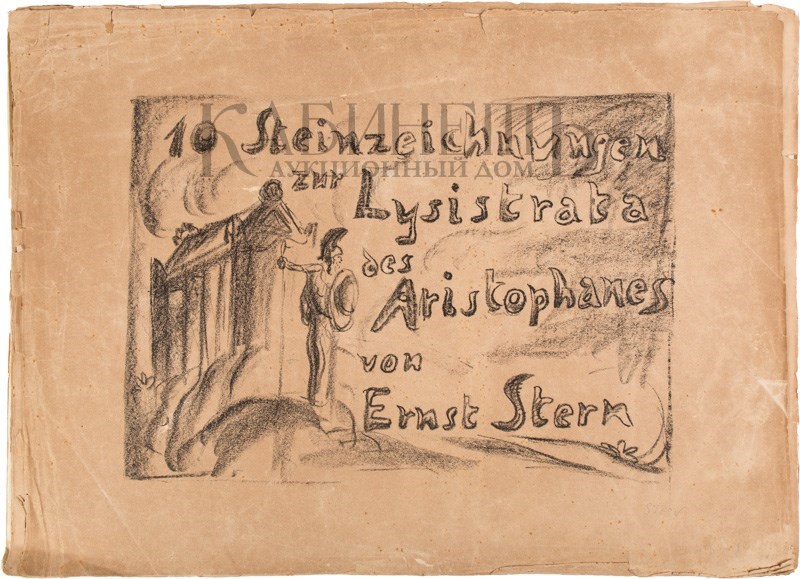 10 Steinzeichnungen
КАБИНЕТЪ
АУКЦИОННЫЙ ДОМ
zur Lysistrata
des
Aristophanes
von
Ernst Stern